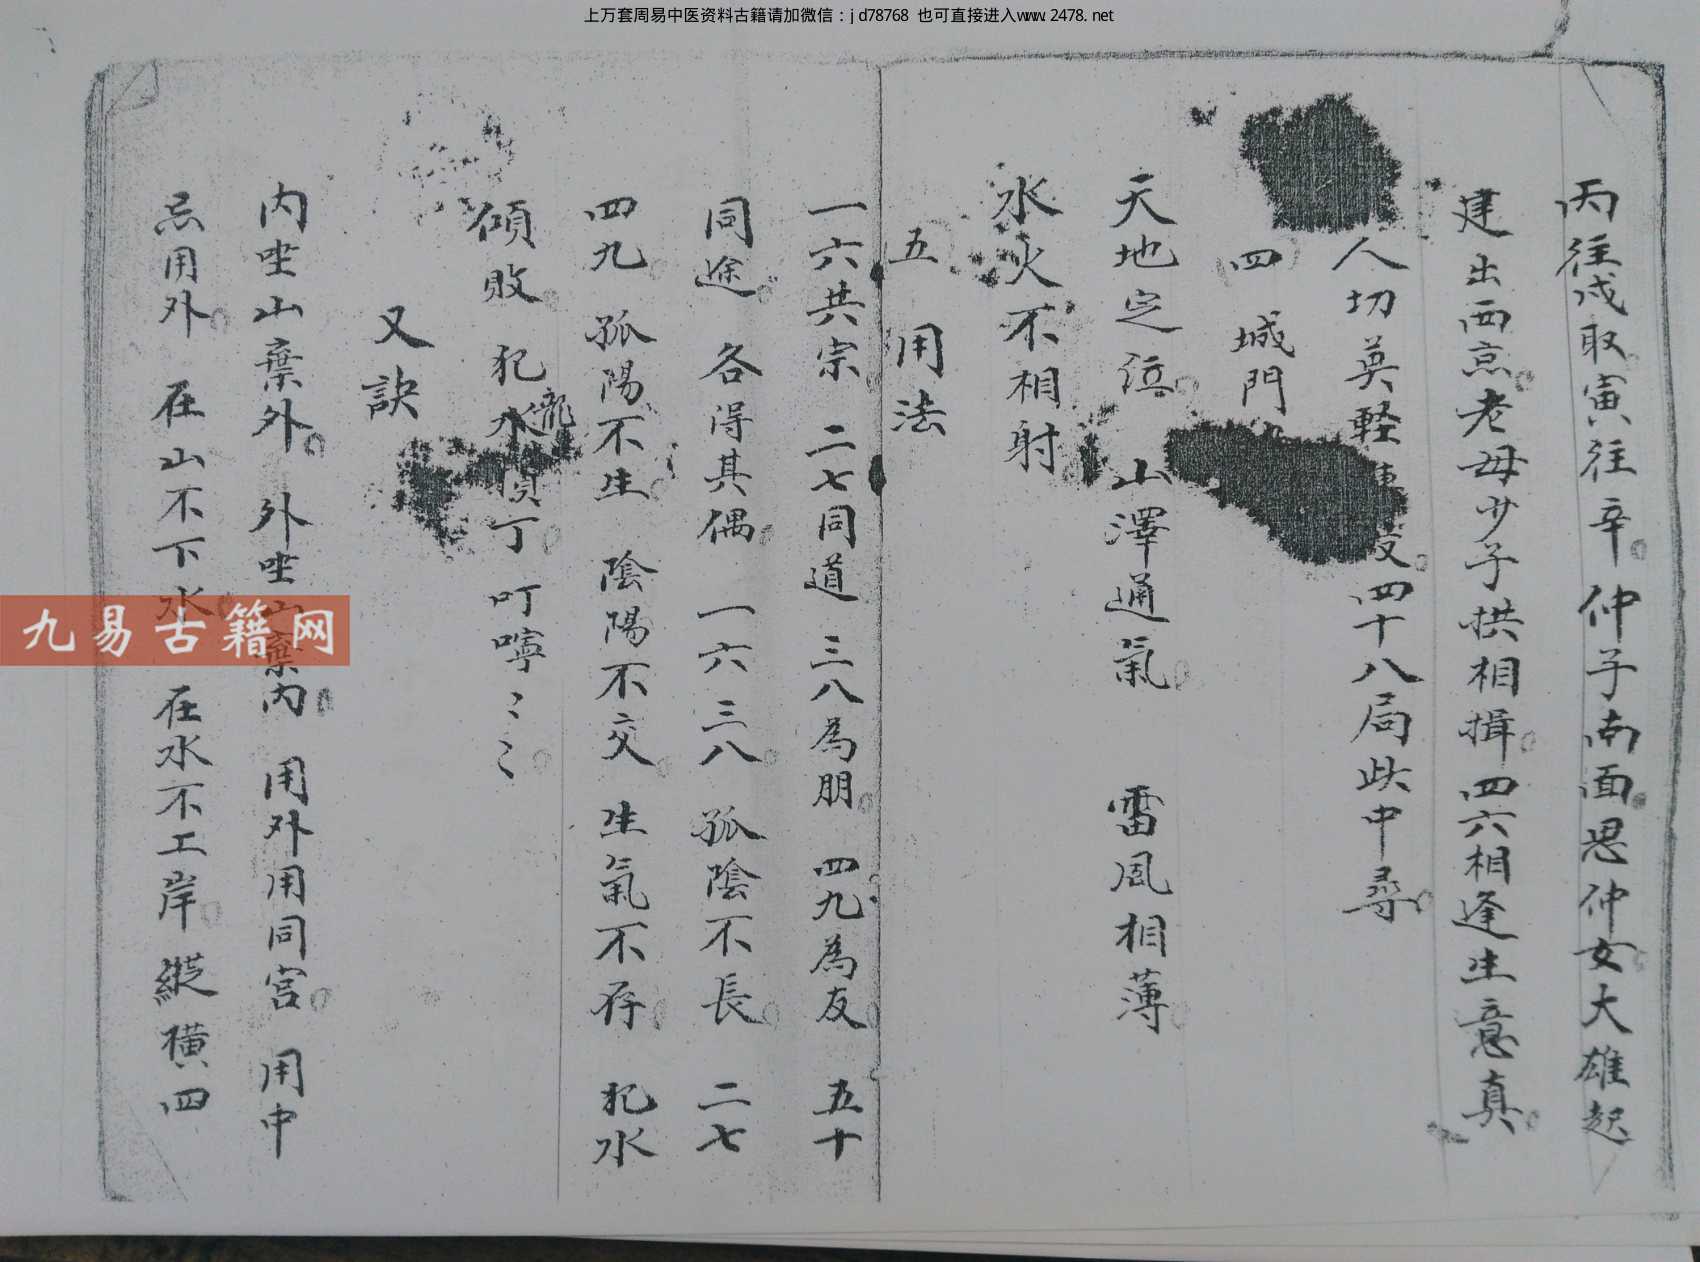 上万套周易中医资料古籍请加微信：jd78768 也可直接进入www.2478.net
丙往戌取寅往辛 仲子南面思仲女大雄起
建出西亰老毋少子拱相揖四六相逢生意真
人切莫軽 四十八局此中尋
四 城門
天地定位 山澤通氣 雷風相薄
水火不相射
五 用法
一六共宗 二七同道 三八為朋 四九為友 五十
同途 各得其偶 一六三八 孤陰不長 二七
四九 孤陽不生 陰陽不交 生氣不存 犯水
傾敗 犯龍 丁 叮嚀〻〻
又訣
内坐山棄外 外坐山棄内 用外用同宮 用中
忌用外 在山不下水 在水不工岸 縱橫四
九易古籍网